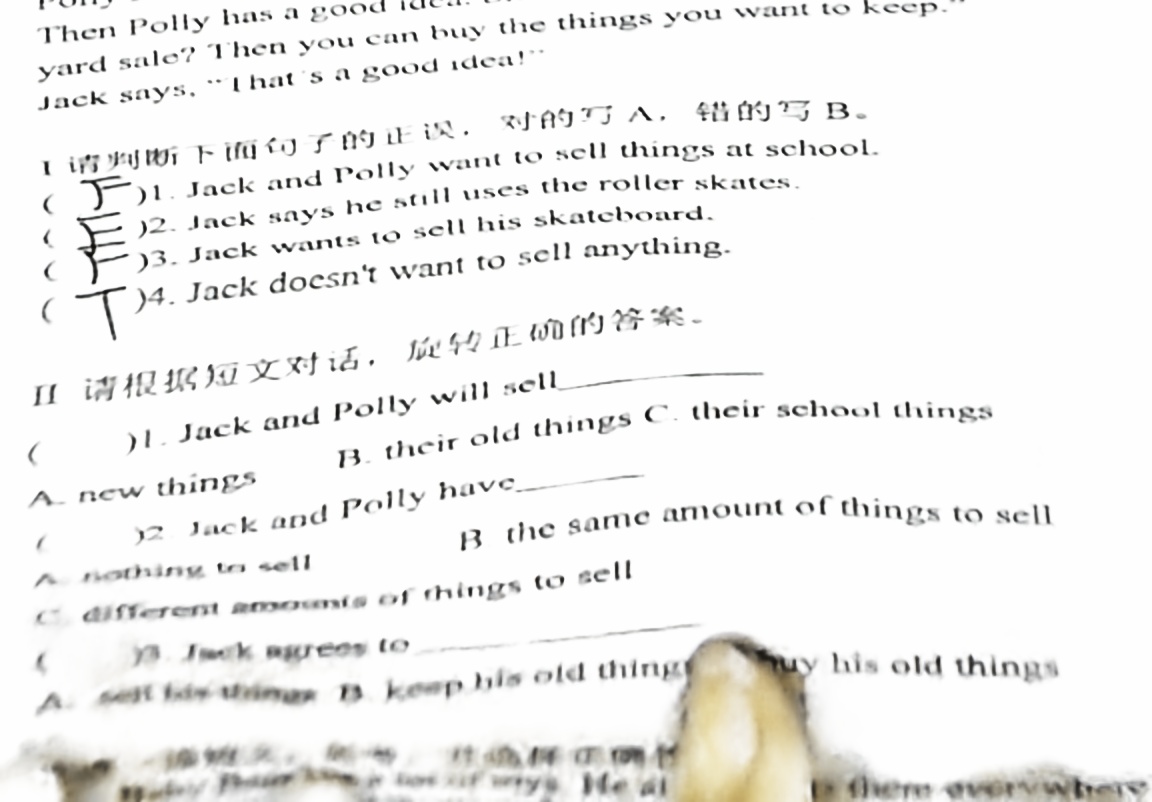 Then Polly has a good idea.
yard sale? Then you can buy the things you want to keep."
Jack says, "That's a good idea!"
I 请判断下面句子的正误，对的写 A，错的写 B。
( F )1. Jack and Polly want to sell things at school.
( F )2. Jack says he still uses the roller skates.
( F )3. Jack wants to sell his skateboard.
( T )4. Jack doesn't want to sell anything.
II 请根据短文对话，旋转正确的答案。
( )1. Jack and Polly will sell__________
A. new things B. their old things C. their school things
( )2. Jack and Polly have________
A. nothing to sell B. the same amount of things to sell
C. different amounts of things to sell
( )3. Jack agrees to ______________
A. sell his things B. keep his old things buy his old things
He there everywhere